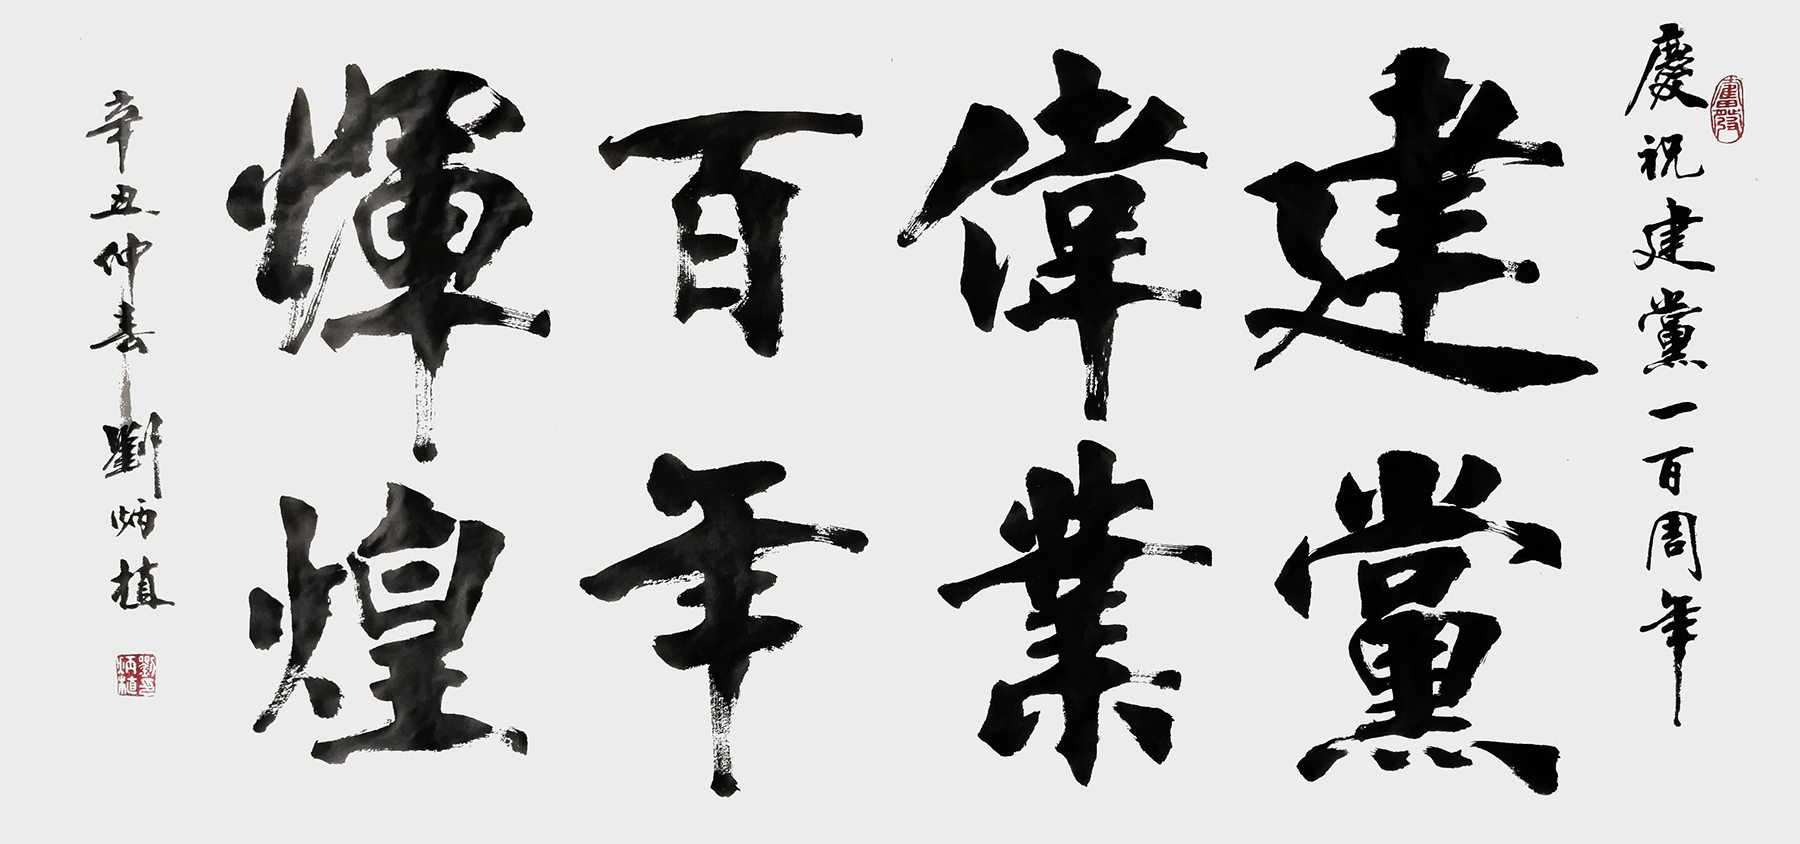 慶祝建黨一百周年
建黨
偉業
百年
輝煌
辛丑仲春劉炳植
劉炳植印